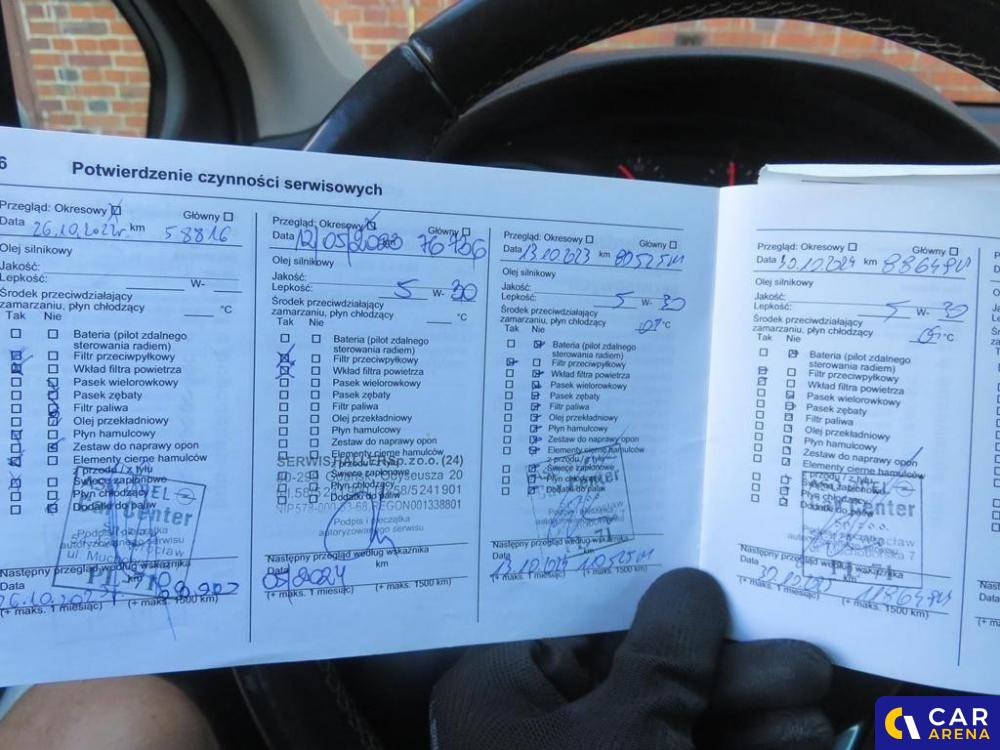 6 Potwierdzenie czynności serwisowych
Przegląd: Okresowy Główny
Data 26.10.2022r. km 58816
Olej silnikowy
Jakość:
Lepkość: W-
Środek przeciwdziałający
zamarzaniu, płyn chłodzący °C
Tak Nie
Bateria (pilot zdalnego
sterowania radiem)
Filtr przeciwpyłkowy
Wkład filtra powietrza
Pasek wielorowkowy
Pasek zębaty
Filtr paliwa
Olej przekładniowy
Płyn hamulcowy
Zestaw do naprawy opon
Elementy cierne hamulców
z przodu / z tyłu
Świece zapłonowe
Płyn chłodzący
Dodatki do paliw
Center
Podpis i pieczątka
autoryzowanego serwisu
ul. Wrocław
Następny przegląd według wskaźnika
Data km
(+ maks. 1 miesiąc) (+ maks. 1500 km)
Przegląd: Okresowy Główny
Data 12/05/2023
Olej silnikowy
Jakość:
Lepkość: 5 W- 30
Środek przeciwdziałający
zamarzaniu, płyn chłodzący °C
Tak Nie
Bateria (pilot zdalnego
sterowania radiem)
Filtr przeciwpyłkowy
Wkład filtra powietrza
Pasek wielorowkowy
Pasek zębaty
Filtr paliwa
Olej przekładniowy
Płyn hamulcowy
Zestaw do naprawy opon
Elementy cierne hamulców
z przodu / z tyłu
SERWIS HALLER Sp. z o.o. (24)
Świece zapłonowe
Odyseusza 20
Płyn chłodzący
Dodatki do paliw
REGON001338801
Podpis i pieczątka
autoryzowanego serwisu
Następny przegląd według wskaźnika
Data 05/2024 km
(+ maks. 1 miesiąc) (+ maks. 1500 km)
Przegląd: Okresowy Główny
Data 13.10.2023 km
Olej silnikowy
Jakość:
Lepkość: 5 W- 30
Środek przeciwdziałający
zamarzaniu, płyn chłodzący °C
Tak Nie
Bateria (pilot zdalnego
sterowania radiem)
Filtr przeciwpyłkowy
Wkład filtra powietrza
Pasek wielorowkowy
Pasek zębaty
Filtr paliwa
Olej przekładniowy
Płyn hamulcowy
Zestaw do naprawy opon
Elementy cierne hamulców
z przodu / z tyłu
Świece zapłonowe
Płyn chłodzący
Dodatki do paliw
Center
Podpis i pieczątka
autoryzowanego serwisu
Następny przegląd według wskaźnika
Data km
(+ maks. 1 miesiąc) (+ maks. 1500 km)
Przegląd: Okresowy Główny
Data 30.10.2024 km
Olej silnikowy
Jakość:
Lepkość: 5 W- 30
Środek przeciwdziałający
zamarzaniu, płyn chłodzący °C
Tak Nie
Bateria (pilot zdalnego
sterowania radiem)
Filtr przeciwpyłkowy
Wkład filtra powietrza
Pasek wielorowkowy
Pasek zębaty
Filtr paliwa
Olej przekładniowy
Płyn hamulcowy
Zestaw do naprawy opon
Elementy cierne hamulców
z przodu / z tyłu
Świece zapłonowe
Płyn chłodzący
Dodatki do paliw
Center
Następny przegląd według wskaźnika
Data 30.10.2025 km
(+ maks. 1 miesiąc) (+ maks. 1500 km)
CAR
ARENA